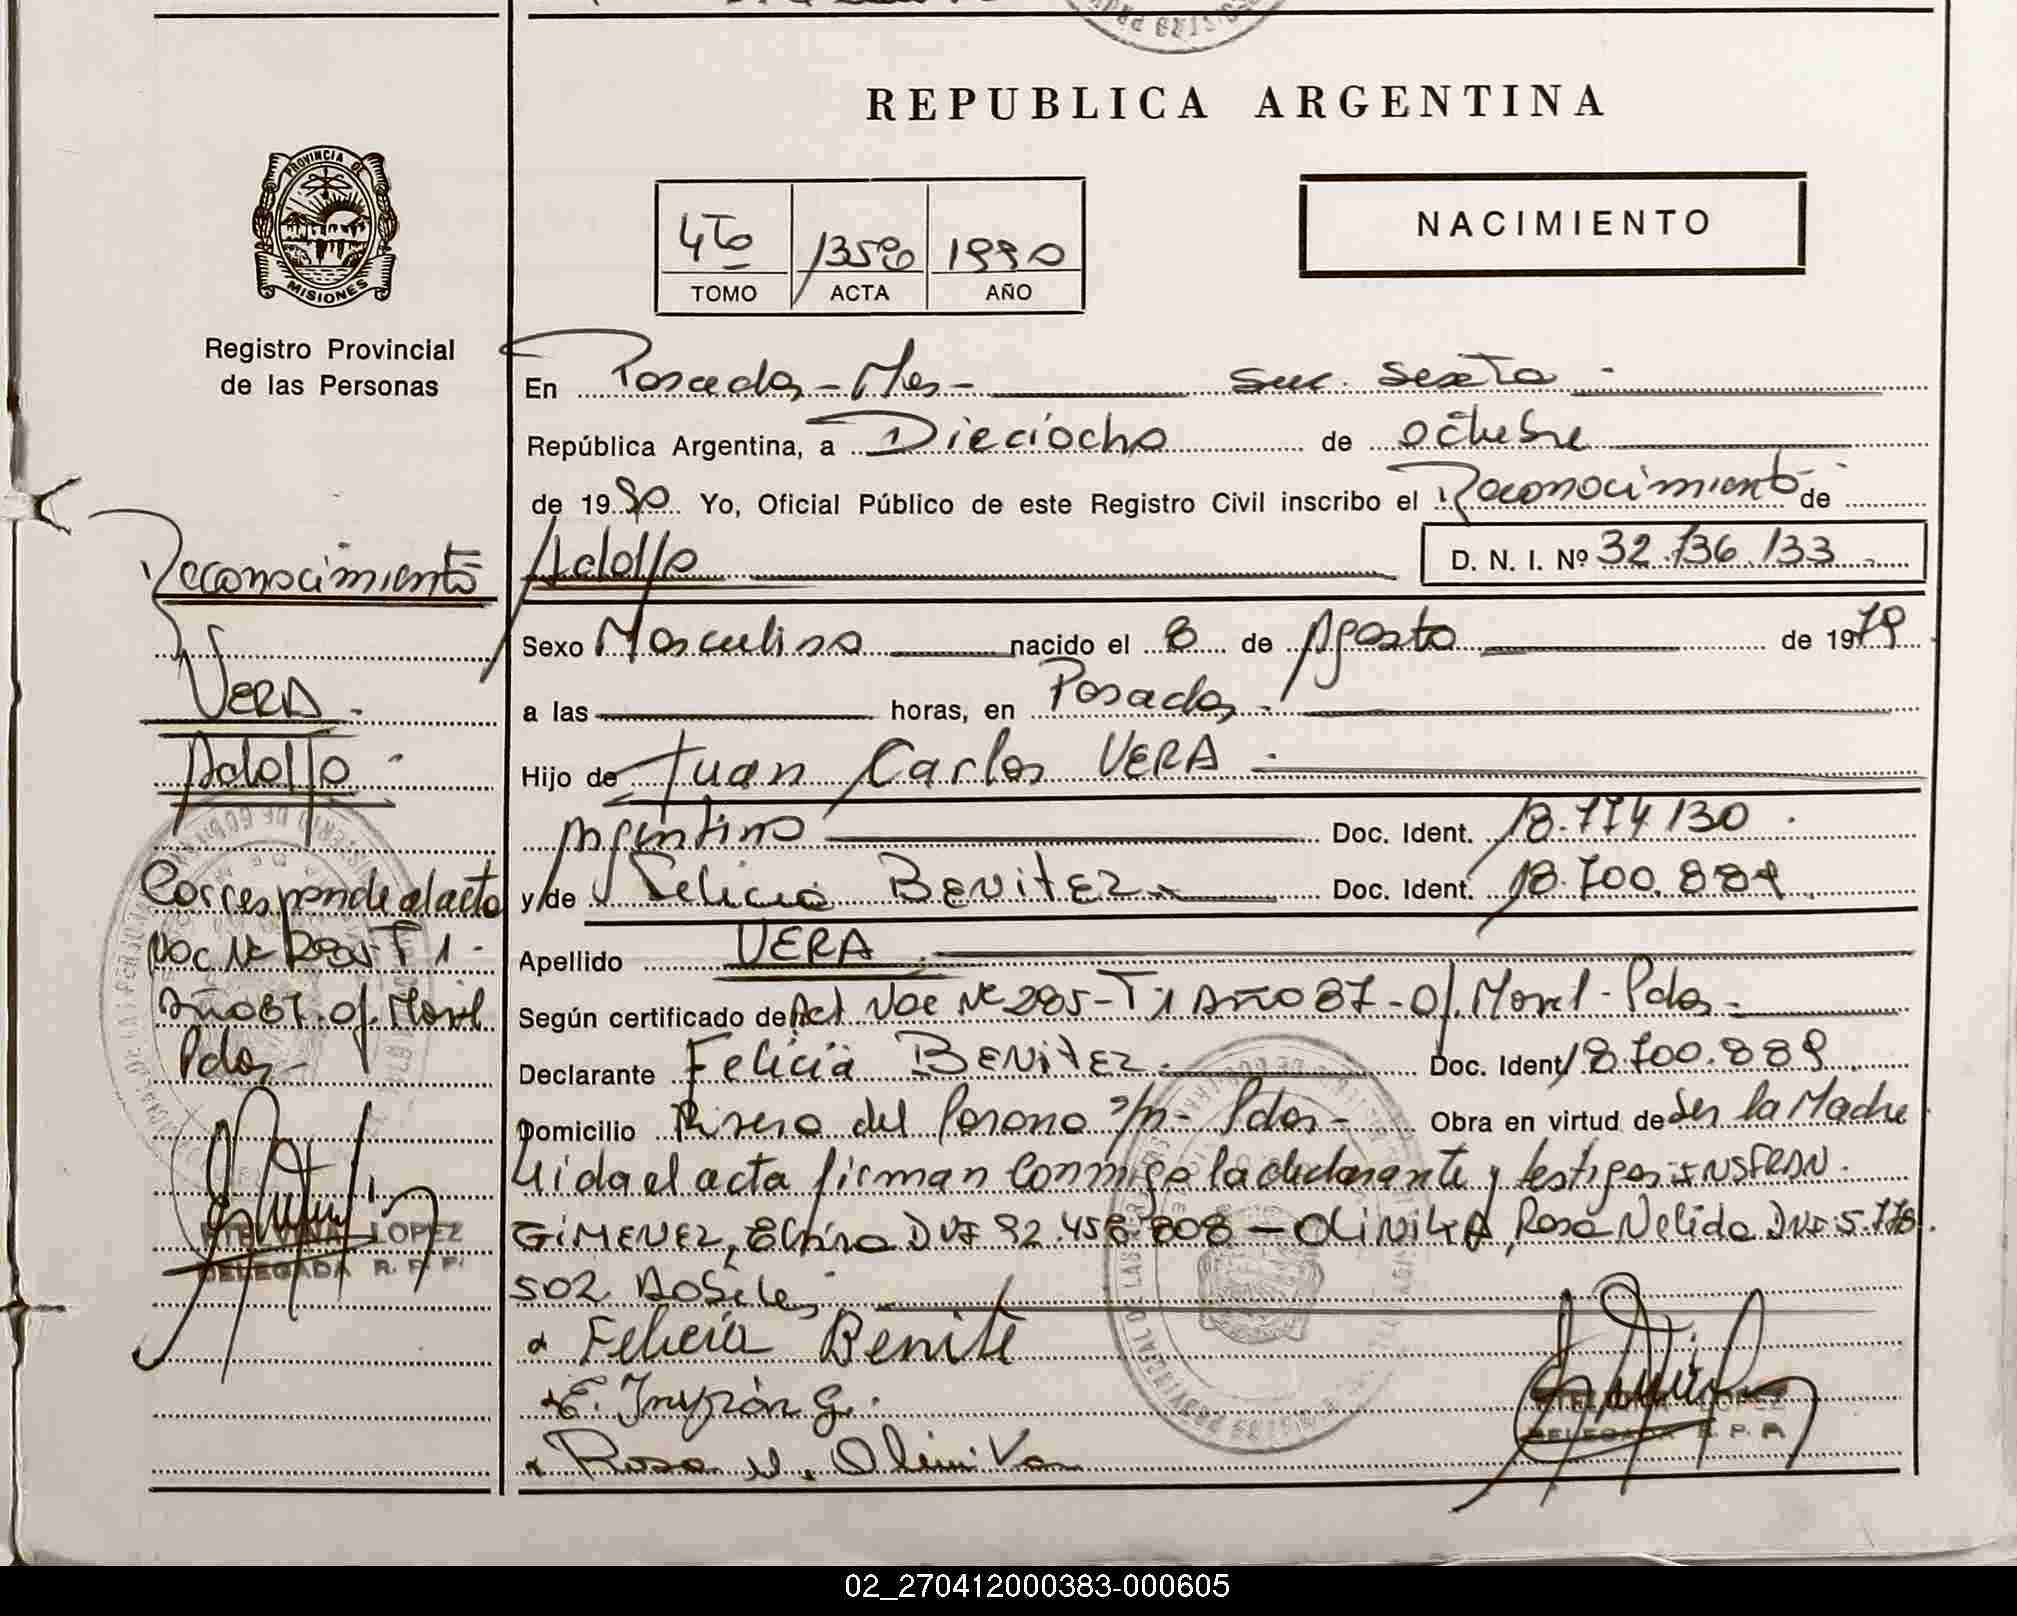 REPUBLICA ARGENTINA
PROVINCIA DE
MISIONES
Registro Provincial
de las Personas
4to 1350 1990
TOMO ACTA AÑO
NACIMIENTO
En Posadas - Mes - suc. sexta
República Argentina, a Dieciocho de octubre
de 1990 Yo, Oficial Público de este Registro Civil inscribo el Reconocimiento de
Adolfo D. N. I. Nº 32.136.133
Sexo Masculino nacido el 8 de Agosto de 1979
a las horas, en Posadas
Hijo de Juan Carlos VERA
Argentino Doc. Ident. 18.774130
y de Felicia BENITEZ Doc. Ident. 18.700.889
Apellido VERA
Según certificado de Act Nac Nº 285-T1 Año 87-Of. Movil-Pdas-
Declarante Felicia BENITEZ Doc. Ident 18.700.889
Domicilio Rivera del Parana s/n- Pdas- Obra en virtud de Ser la Madre
Leida el acta firman conmigo la declarante y testigos INSFRAN
GIMENEZ, Elvira DNI 92.458.808 - OLINIKA, Rosa Nelida DNI 5.778.
502
Felicia Benite
E. Insfrán G.
Rosa N. Olinika
Reconocimiento
VERA
Adolfo
Corresponde al acta
Nac Nº 285 T 1
Año 87. Of. Movil
Pdas-
ETELVINA LOPEZ
DELEGADA R. P. P.
ETELVINA LOPEZ
DELEGADA R. P. P.
02_270412000383-000605